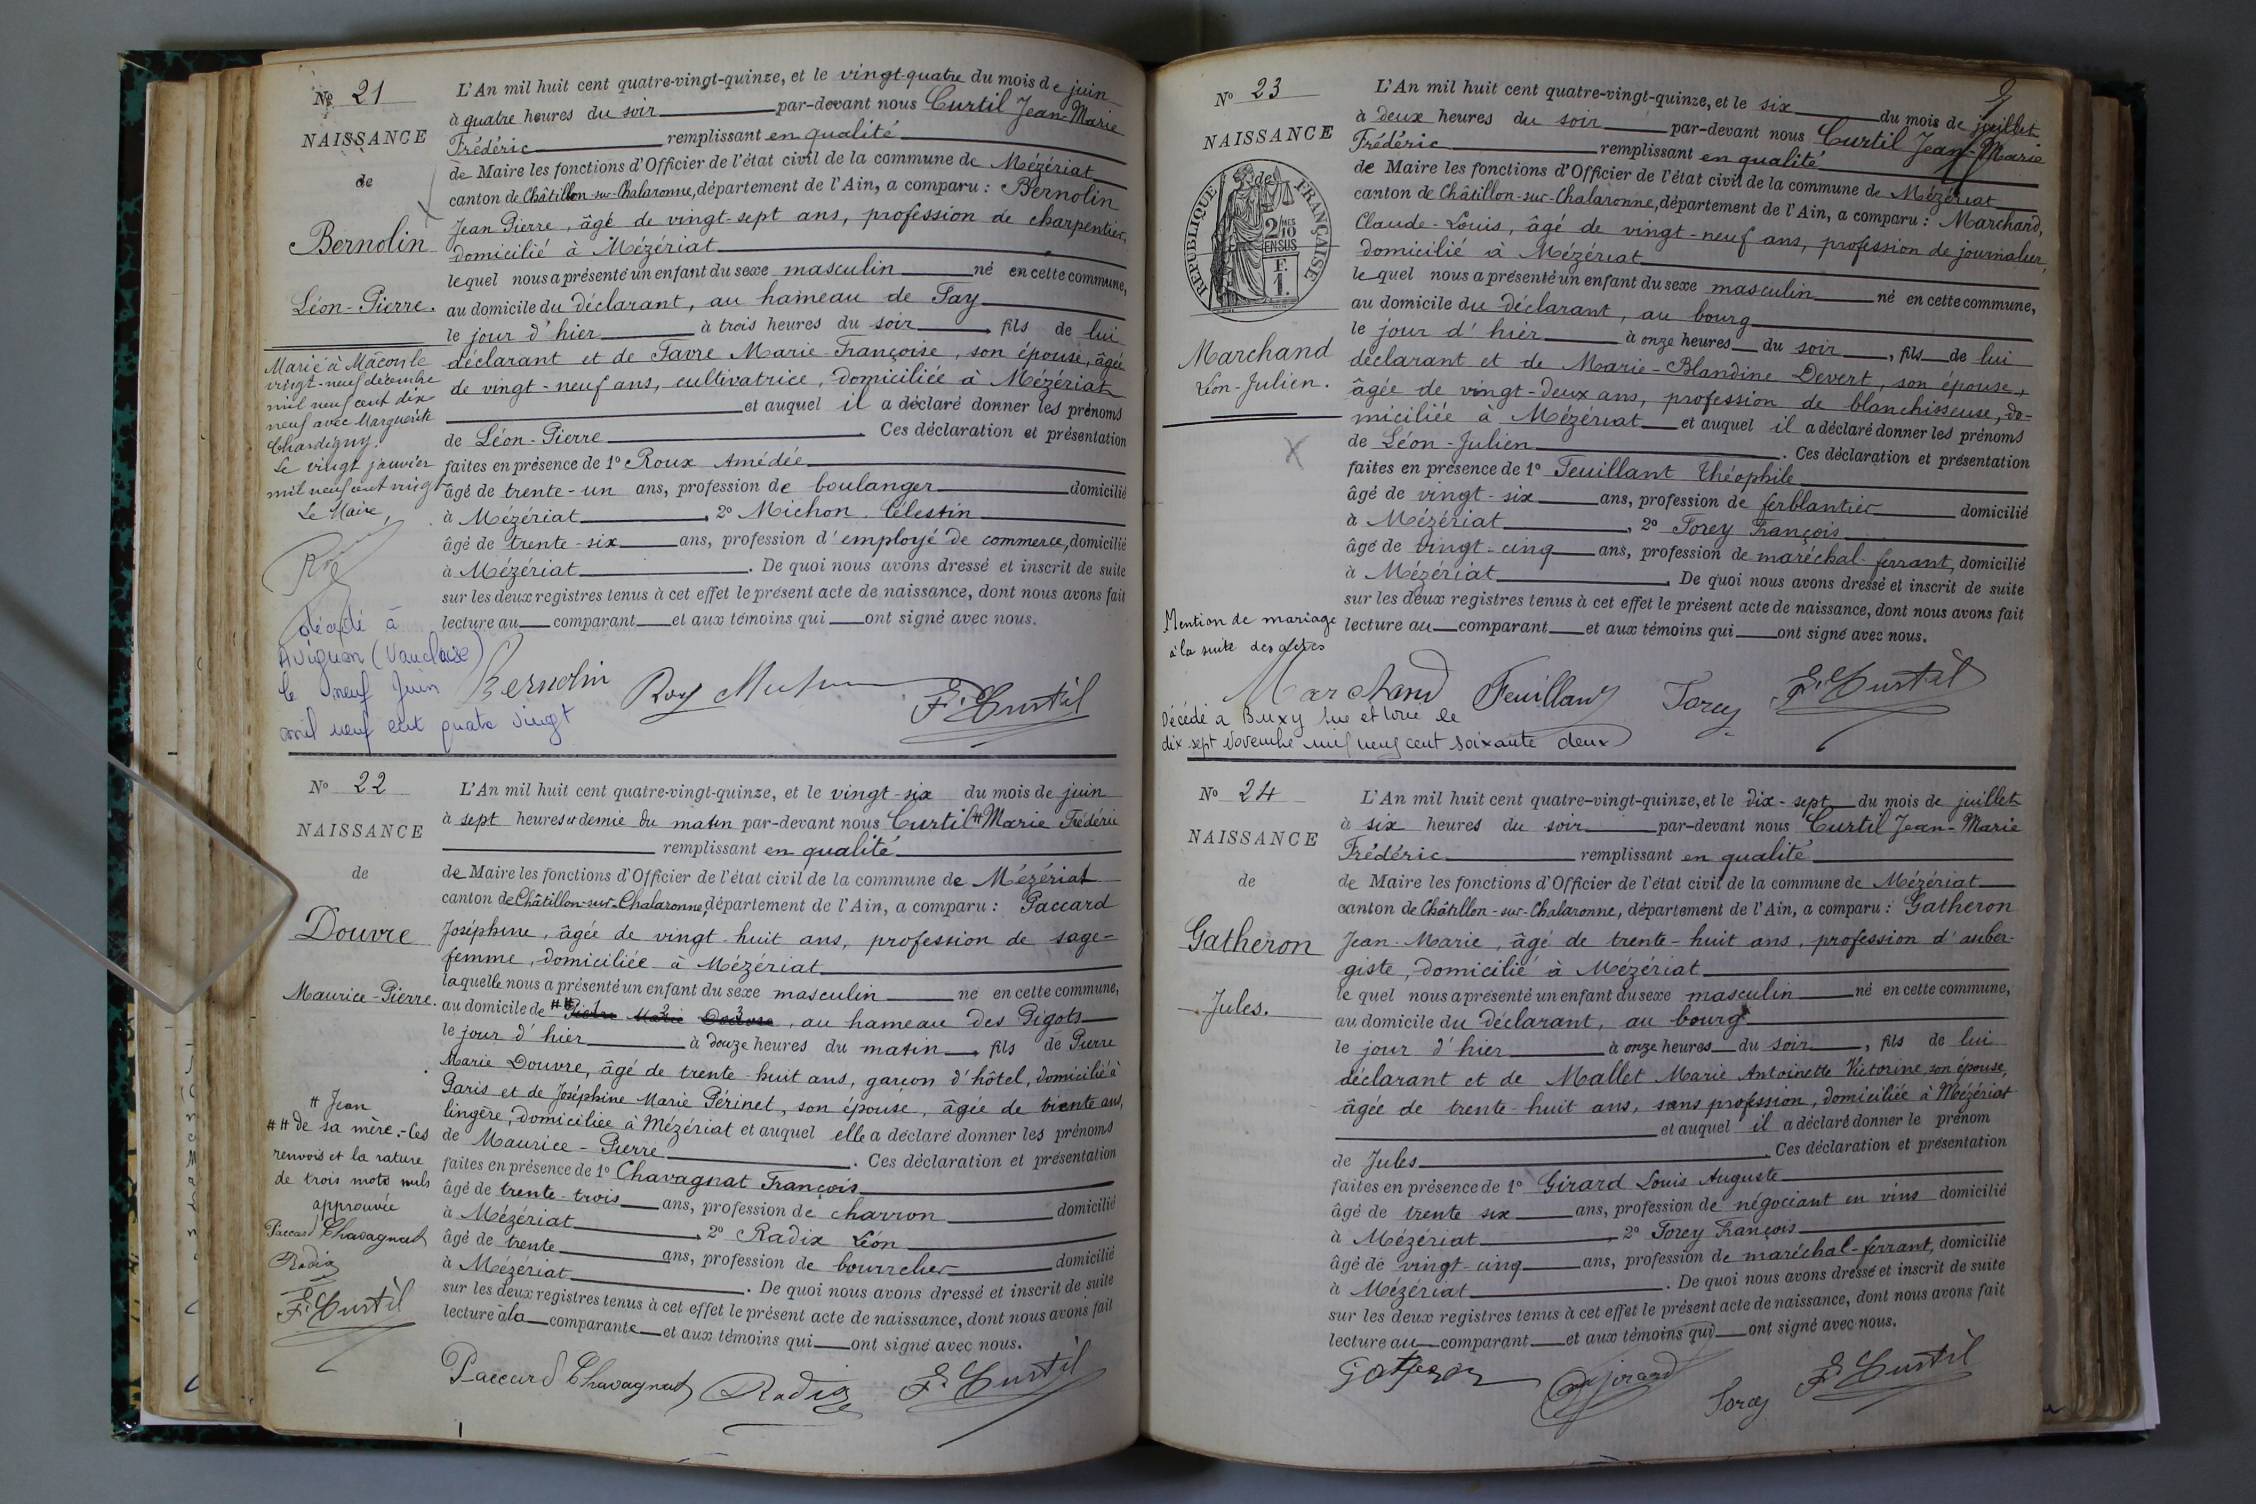 Nº 21
NAISSANCE
de
Bernolin
Léon-Pierre.
Marié à Mâcon le
vingt-neuf décembre
mil neuf cent dix
neuf avec Marguerite
Chardigny.
Le vingt janvier
mil neuf cent vingt
Le Maire,
décédé à
Avignon (Vaucluse)
le neuf Juin
mil neuf cent quatre vingt
L'An mil huit cent quatre-vingt-quinze, et le vingt-quatre du mois de juin
à quatre heures du soir par-devant nous Curtil Jean-Marie
Frédéric remplissant en qualité
de Maire les fonctions d'Officier de l'état civil de la commune de Mézériat
canton de Châtillon-sur-Chalaronne, département de l'Ain, a comparu : Bernolin
Jean Pierre, âgé de vingt-sept ans, profession de charpentier,
domicilié à Mézériat
lequel nous a présenté un enfant du sexe masculin né en cette commune,
au domicile du déclarant, au hameau de Fay
le jour d'hier à trois heures du soir, fils de lui
déclarant et de Favre Marie Françoise, son épouse, âgée
de vingt-neuf ans, cultivatrice, domiciliée à Mézériat
et auquel il a déclaré donner les prénoms
de Léon-Pierre. Ces déclaration et présentation
faites en présence de 1º Roux Amédée
âgé de trente-un ans, profession de boulanger domicilié
à Mézériat, 2º Michon Célestin
âgé de trente-six ans, profession d'employé de commerce, domicilié
à Mézériat. De quoi nous avons dressé et inscrit de suite
sur les deux registres tenus à cet effet le présent acte de naissance, dont nous avons fait
lecture au comparant et aux témoins qui ont signé avec nous.
Bernolin F. Curtil
Nº 22
NAISSANCE
de
Douvre
Maurice-Pierre.
# Jean
## de sa mère.- Les
renvois et la rature
de trois mots nuls
approuvée
Paccard Chavagnat
Radix
F. Curtil
L'An mil huit cent quatre-vingt-quinze, et le vingt-six du mois de juin
à sept heures et demie du matin par-devant nous Curtil # Marie Frédéric
remplissant en qualité
de Maire les fonctions d'Officier de l'état civil de la commune de Mézériat
canton de Châtillon-sur-Chalaronne, département de l'Ain, a comparu : Paccard
Joséphine, âgée de vingt-huit ans, profession de sage-
femme, domiciliée à Mézériat
laquelle nous a présenté un enfant du sexe masculin né en cette commune,
au domicile de ## Pierre Marie Douvre, au hameau des Pigots
le jour d'hier à douze heures du matin, fils de Pierre
Marie Douvre, âgé de trente-huit ans, garçon d'hôtel, domicilié à
Paris et de Joséphine Marie Périnet, son épouse, âgée de trente ans,
lingère, domiciliée à Mézériat et auquel elle a déclaré donner les prénoms
de Maurice-Pierre. Ces déclaration et présentation
faites en présence de 1º Chavagnat François
âgé de trente-trois ans, profession de charron domicilié
à Mézériat, 2º Radix Léon
âgé de trente ans, profession de bourrelier domicilié
à Mézériat. De quoi nous avons dressé et inscrit de suite
sur les deux registres tenus à cet effet le présent acte de naissance, dont nous avons fait
lecture à la comparante et aux témoins qui ont signé avec nous.
Paccard Chavagnat Radix F. Curtil
9
Nº 23
NAISSANCE
de
RÉPUBLIQUE FRANÇAISE
2 MES 10 EN SUS
F. 1.
Marchand
Léon-Julien.
Mention de mariage
à la suite des actes
Décédé à Buxy Sne et Loire le
dix sept Novembre mil neuf cent soixante deux
L'An mil huit cent quatre-vingt-quinze, et le six du mois de juillet
à deux heures du soir par-devant nous Curtil Jean-Marie
Frédéric remplissant en qualité
de Maire les fonctions d'Officier de l'état civil de la commune de Mézériat
canton de Châtillon-sur-Chalaronne, département de l'Ain, a comparu : Marchand,
Claude-Louis, âgé de vingt-neuf ans, profession de journalier,
domicilié à Mézériat
lequel nous a présenté un enfant du sexe masculin né en cette commune,
au domicile du déclarant, au bourg
le jour d'hier à onze heures du soir, fils de lui
déclarant et de Marie-Blandine Devert, son épouse,
âgée de vingt-deux ans, profession de blanchisseuse, do-
miciliée à Mézériat et auquel il a déclaré donner les prénoms
de Léon-Julien. Ces déclaration et présentation
faites en présence de 1º Feuillant Théophile
âgé de vingt-six ans, profession de ferblantier domicilié
à Mézériat, 2º Forey François
âgé de vingt-cinq ans, profession de maréchal-ferrant, domicilié
à Mézériat. De quoi nous avons dressé et inscrit de suite
sur les deux registres tenus à cet effet le présent acte de naissance, dont nous avons fait
lecture au comparant et aux témoins qui ont signé avec nous.
Marchand Feuillant Forey F. Curtil
Nº 24
NAISSANCE
de
Gatheron
Jules.
L'An mil huit cent quatre-vingt-quinze, et le dix-sept du mois de juillet
à six heures du soir par-devant nous Curtil Jean-Marie
Frédéric remplissant en qualité
de Maire les fonctions d'Officier de l'état civil de la commune de Mézériat
canton de Châtillon-sur-Chalaronne, département de l'Ain, a comparu : Gatheron
Jean-Marie, âgé de trente-huit ans, profession d'auber-
giste, domicilié à Mézériat
lequel nous a présenté un enfant du sexe masculin né en cette commune,
au domicile du déclarant, au bourg
le jour d'hier à onze heures du soir, fils de lui
déclarant et de Mallet Marie Antoinette Victorine, son épouse,
âgée de trente-huit ans, sans profession, domiciliée à Mézériat
et auquel il a déclaré donner le prénom
de Jules. Ces déclaration et présentation
faites en présence de 1º Girard Louis Auguste
âgé de trente six ans, profession de négociant en vins domicilié
à Mézériat, 2º Forey François
âgé de vingt-cinq ans, profession de maréchal-ferrant, domicilié
à Mézériat. De quoi nous avons dressé et inscrit de suite
sur les deux registres tenus à cet effet le présent acte de naissance, dont nous avons fait
lecture au comparant et aux témoins qui ont signé avec nous.
Gatheron Girard Forey F. Curtil